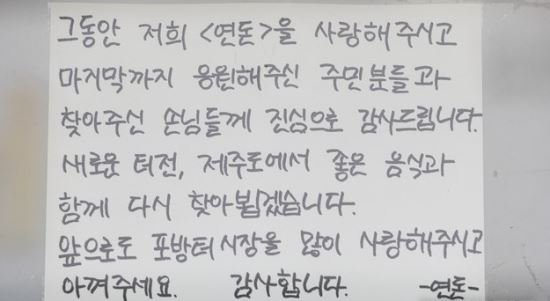 그동안 저희 <연돈>을 사랑해주시고
마지막까지 응원해주신 주민분들과
찾아주신 손님들께 진심으로 감사드립니다.
새로운 터전, 제주도에서 좋은 음식과
함께 다시 찾아뵙겠습니다.
앞으로도 포방터시장을 많이 사랑해주시고
아껴주세요. 감사합니다. -연돈-